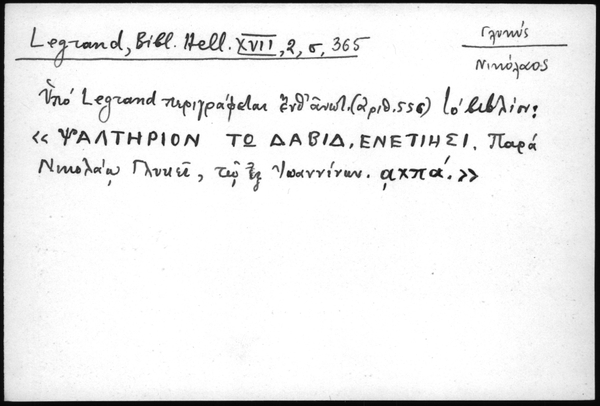 Legrand, Bibl. Hell. XVII, 2, σ, 365
Γλυκύς
Νικόλαος
Ὑπό Legrand περιγράφεται (ἀριθ. 556) το βιβλίον:
« ΨΑΛΤΗΡΙΟΝ ΤΩ ΔΑΒΙΔ, ΕΝΕΤΙΗΣΙ, Παρά
Νικολάῳ Γλυκεῖ, τῷ ἐξ Ἰωαννίνων. αχπά. »